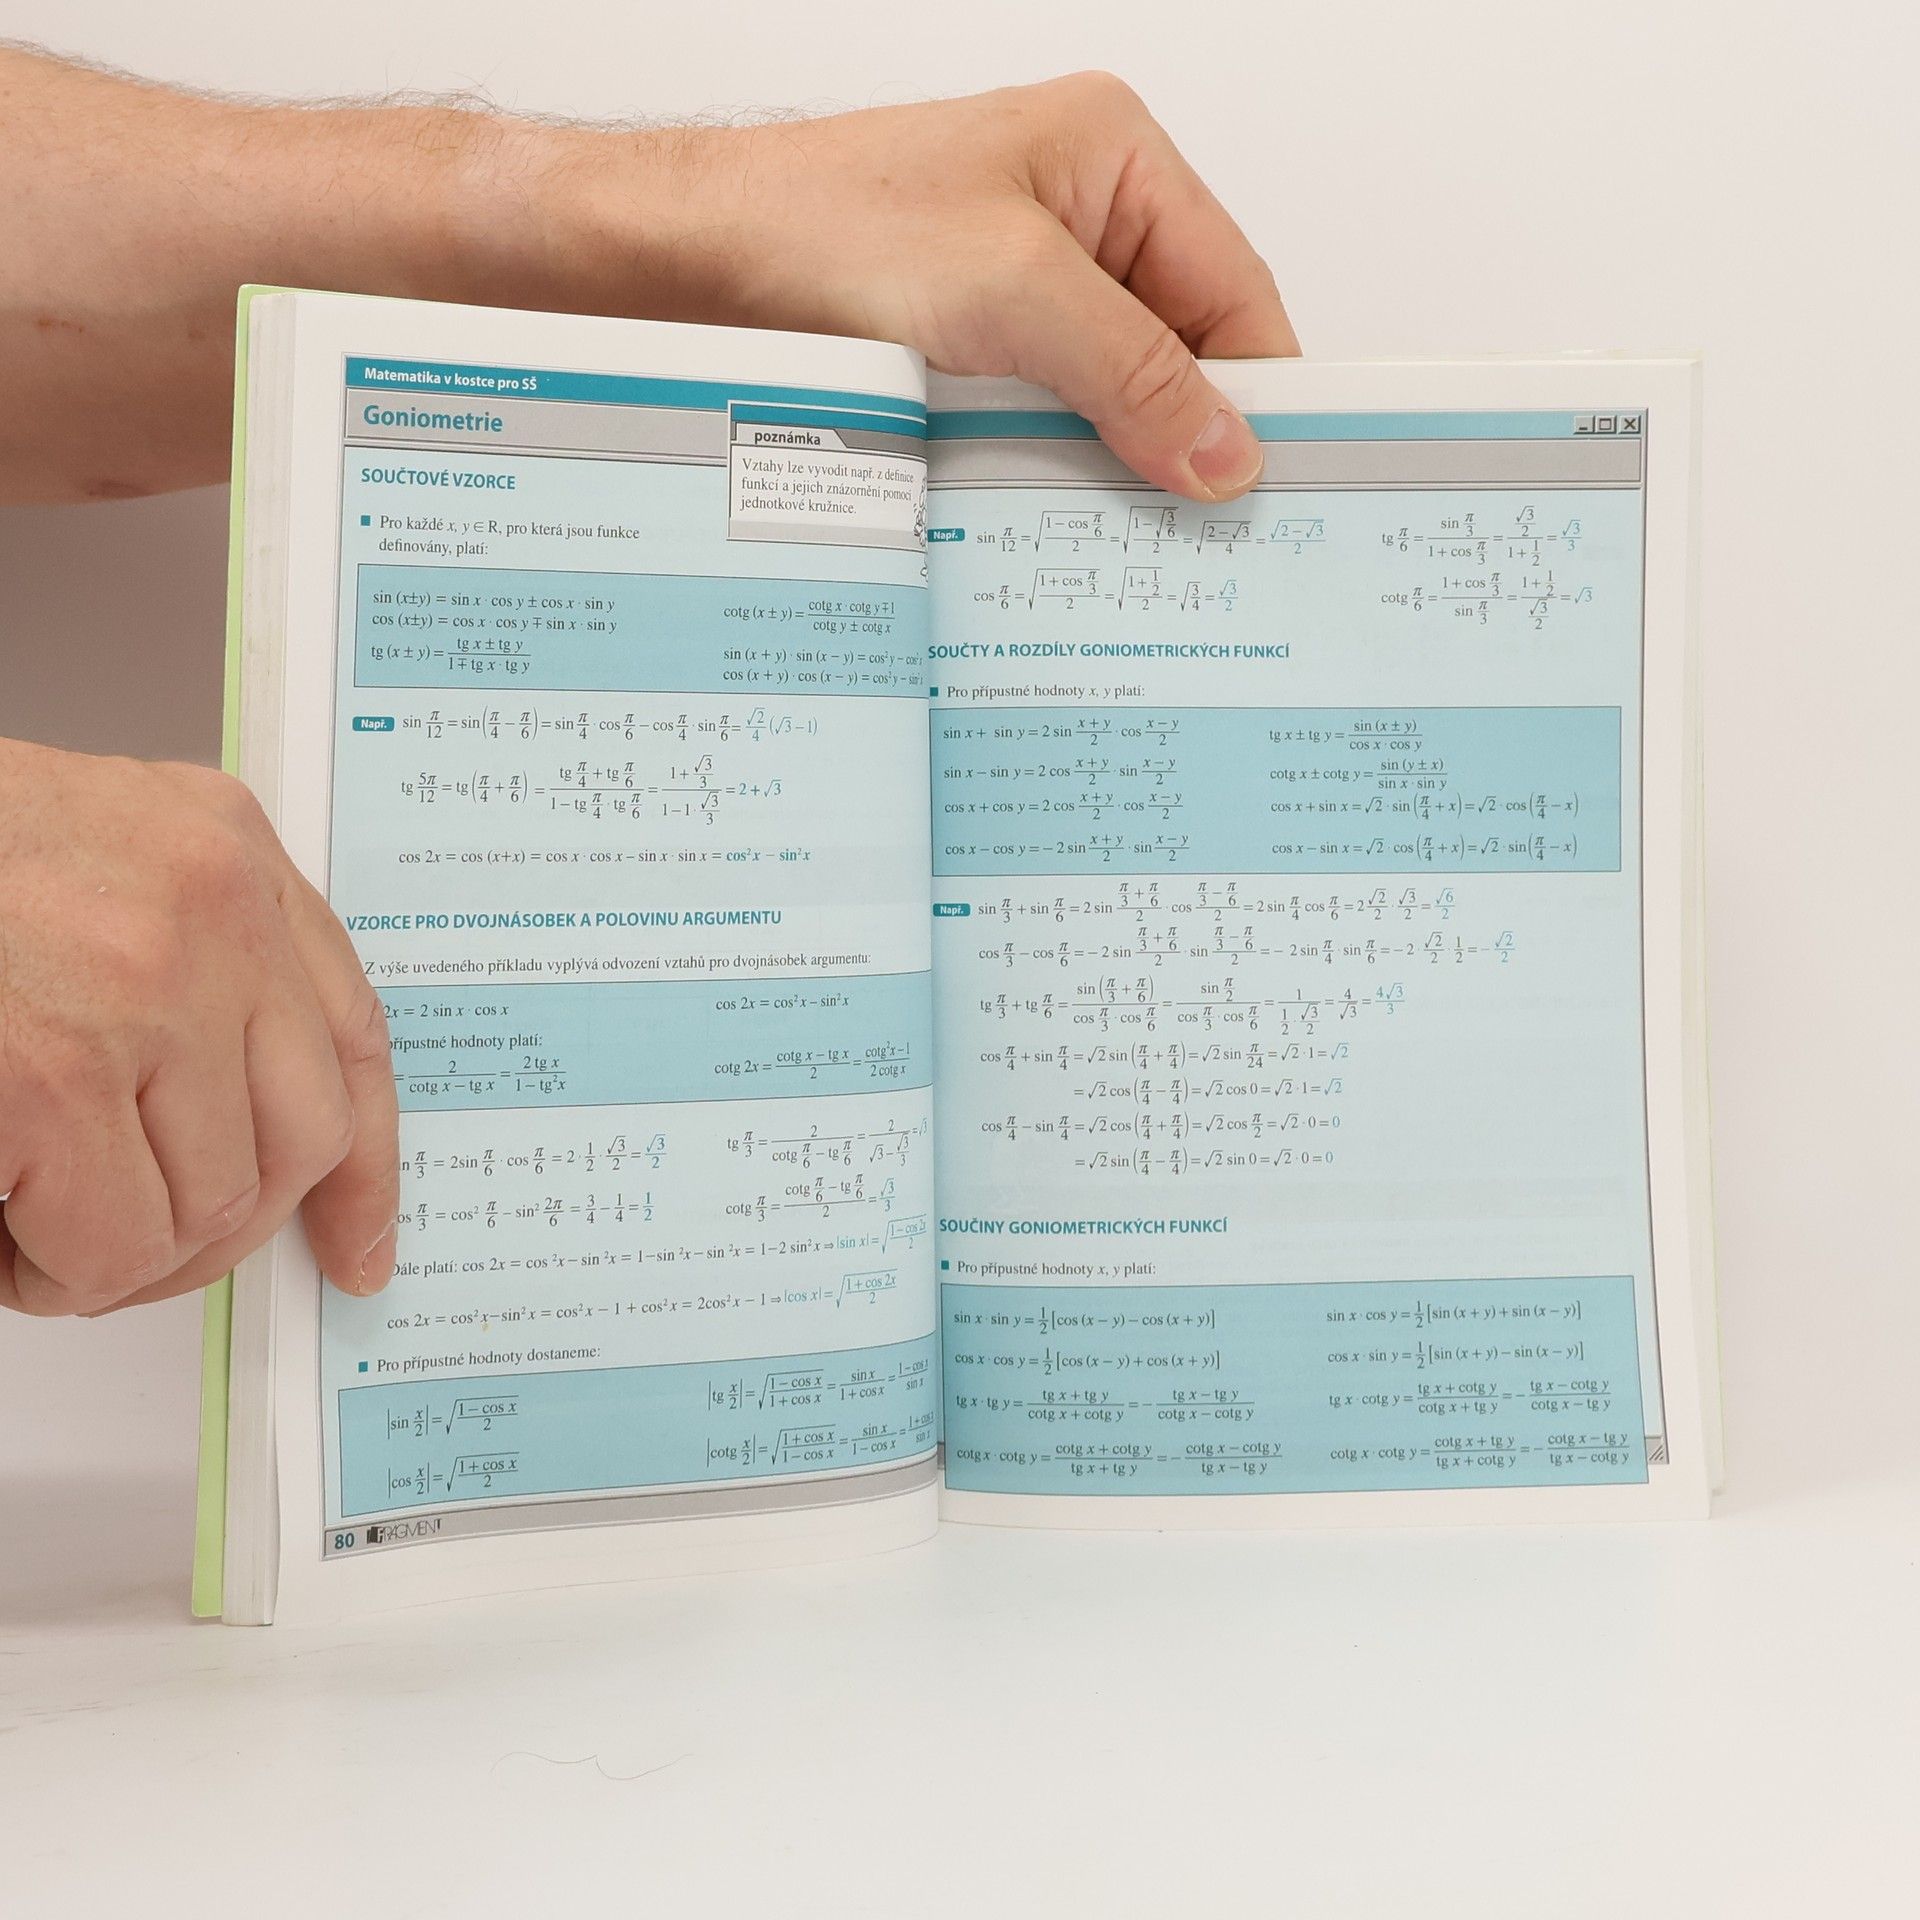 Matematika v kostce pro SŠ
Goniometrie
poznámka
Vztahy lze vyvodit např. z definice
funkcí a jejich znázornění pomocí
jednotkové kružnice.
SOUČTOVÉ VZORCE
■ Pro každé x, y ∈ R, pro která jsou funkce
definovány, platí:
sin (x±y) = sin x · cos y ± cos x · sin y
cos (x±y) = cos x · cos y ∓ sin x · sin y
tg (x ± y) = (tg x ± tg y)/(1 ∓ tg x · tg y)
cotg (x ± y) = (cotg x · cotg y ∓ 1)/(cotg y ± cotg x)
sin (x + y) · sin (x − y) = cos²y − cos²x
cos (x + y) · cos (x − y) = cos²y − sin²x
Např. sin π/12 = sin(π/4 − π/6) = sin π/4 · cos π/6 − cos π/4 · sin π/6 = √2/4 (√3 − 1)
tg 5π/12 = tg (π/4 + π/6) = (tg π/4 + tg π/6)/(1 − tg π/4 · tg π/6) = (1 + √3/3)/(1 − 1 · √3/3) = 2 + √3
cos 2x = cos (x+x) = cos x · cos x − sin x · sin x = cos²x − sin²x
VZORCE PRO DVOJNÁSOBEK A POLOVINU ARGUMENTU
Z výše uvedeného příkladu vyplývá odvození vztahů pro dvojnásobek argumentu:
2x = 2 sin x · cos x
cos 2x = cos²x − sin²x
přípustné hodnoty platí:
= 2/(cotg x − tg x) = 2 tg x/(1 − tg²x)
cotg 2x = (cotg x − tg x)/2 = (cotg²x − 1)/(2 cotg x)
in π/3 = 2sin π/6 · cos π/6 = 2 · 1/2 · √3/2 = √3/2
tg π/3 = 2/(cotg π/6 − tg π/6) = 2/(√3 − √3/3) = √3
os π/3 = cos² π/6 − sin² 2π/6 = 3/4 − 1/4 = 1/2
cotg π/3 = (cotg π/6 − tg π/6)/2 = √3/3
Dále platí: cos 2x = cos ²x − sin ²x = 1−sin ²x − sin ²x = 1−2 sin²x ⇒ |sin x| = √((1 − cos 2x)/2)
cos 2x = cos²x−sin²x = cos²x − 1 + cos²x = 2cos²x − 1 ⇒ |cos x| = √((1 + cos 2x)/2)
■ Pro přípustné hodnoty dostaneme:
|sin x/2| = √((1 − cos x)/2)
|tg x/2| = √((1 − cos x)/(1 + cos x)) = sin x/(1 + cos x) = (1 − cos x)/sin x
|cos x/2| = √((1 + cos x)/2)
|cotg x/2| = √((1 + cos x)/(1 − cos x)) = sin x/(1 − cos x) = (1 + cos x)/sin x
80 FRAGMENT
Např. sin π/12 = √((1 − cos π/6)/2) = √((1 − √3/6)/2) = √((2 − √3)/4) = √(2 − √3)/2
tg π/6 = sin π/3/(1 + cos π/3) = (√3/2)/(1 + 1/2) = √3/3
cos π/6 = √((1 + cos π/3)/2) = √((1 + 1/2)/2) = √(3/4) = √3/2
cotg π/6 = (1 + cos π/3)/sin π/3 = (1 + 1/2)/(√3/2) = √3
SOUČTY A ROZDÍLY GONIOMETRICKÝCH FUNKCÍ
■ Pro přípustné hodnoty x, y platí:
sin x + sin y = 2 sin (x + y)/2 · cos (x − y)/2
tg x ± tg y = sin (x ± y)/(cos x · cos y)
sin x − sin y = 2 cos (x + y)/2 · sin (x − y)/2
cotg x ± cotg y = sin (y ± x)/(sin x · sin y)
cos x + cos y = 2 cos (x + y)/2 · cos (x − y)/2
cos x + sin x = √2 · sin (π/4 + x) = √2 · cos (π/4 − x)
cos x − cos y = − 2 sin (x + y)/2 · sin (x − y)/2
cos x − sin x = √2 · cos (π/4 + x) = √2 · sin (π/4 − x)
Např. sin π/3 + sin π/6 = 2 sin (π/3 + π/6)/2 · cos (π/3 − π/6)/2 = 2 sin π/4 cos π/6 = 2 √2/2 · √3/2 = √6/2
cos π/3 − cos π/6 = − 2 sin (π/3 + π/6)/2 · sin (π/3 − π/6)/2 = − 2 sin π/4 · sin π/6 = −2 · √2/2 · 1/2 = − √2/2
tg π/3 + tg π/6 = sin (π/3 + π/6)/(cos π/3 · cos π/6) = sin π/2/(cos π/3 · cos π/6) = 1/(1/2 · √3/2) = 4/√3 = 4√3/3
cos π/4 + sin π/4 = √2 sin (π/4 + π/4) = √2 sin π/24 = √2 · 1 = √2
= √2 cos (π/4 − π/4) = √2 cos 0 = √2 · 1 = √2
cos π/4 − sin π/4 = √2 cos (π/4 + π/4) = √2 cos π/2 = √2 · 0 = 0
= √2 sin (π/4 − π/4) = √2 sin 0 = √2 · 0 = 0
SOUČINY GONIOMETRICKÝCH FUNKCÍ
■ Pro přípustné hodnoty x, y platí:
sin x · sin y = 1/2 [cos (x − y) − cos (x + y)]
sin x · cos y = 1/2 [sin (x + y) + sin (x − y)]
cos x · cos y = 1/2 [cos (x − y) + cos (x + y)]
cos x · sin y = 1/2 [sin (x + y) − sin (x − y)]
tg x · tg y = (tg x + tg y)/(cotg x + cotg y) = − (tg x − tg y)/(cotg x − cotg y)
tg x · cotg y = (tg x + cotg y)/(cotg x + tg y) = − (tg x − cotg y)/(cotg x − tg y)
cotg x · cotg y = (cotg x + cotg y)/(tg x + tg y) = − (cotg x − cotg y)/(tg x − tg y)
cotg x · cotg y = (cotg x + tg y)/(tg x + cotg y) = − (cotg x − tg y)/(tg x − cotg y)